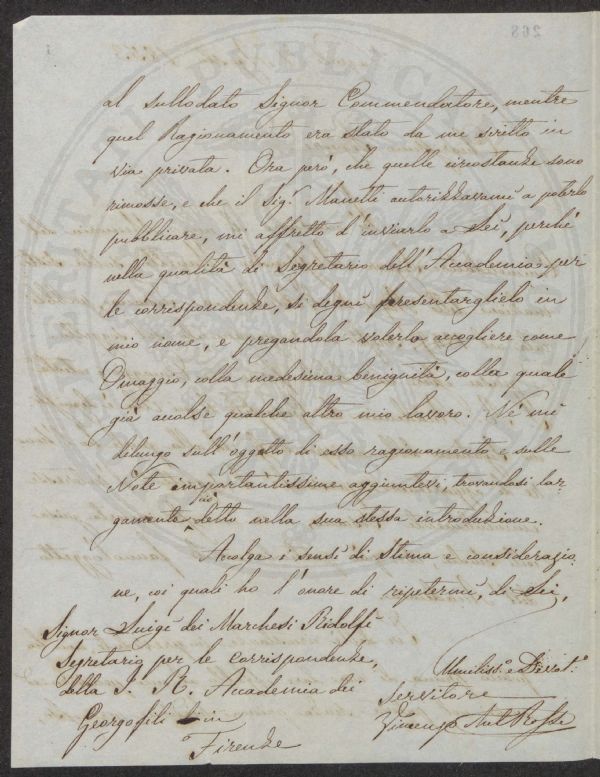 268
al sullodato Signor Commendatore, mentre
quel Ragionamento era stato da me scritto in
via privata. Ora però, che quelle circostanze sono
rimosse, e che il Sig.r Manelli autorizzavami a poterlo
pubblicare, mi affretto d'inviarlo a Lei, perchè
nella qualità di Segretario dell'Accademia per
le corrispondenze, si degni presentarglielo in
mio nome, e pregandola volerlo accogliere come
Omaggio, colla medesima benignità, colla quale
già accolse qualche altro mio lavoro. Nè mi
dilungo sull'oggetto di esso ragionamento e sulle
Note importantissime aggiuntevi, trovandosi lar-
gamente ciò detto nella sua stessa introduzione.
Accolga i sensi di stima e considerazio-
ne, coi quali ho l'onore di ripetermi, di Lei,
Signor Luigi dei Marchesi Ridolfi
Segretario per le corrispondenze,
della I. R. Accademia dei
Georgofili in
Firenze
Umiliss.o e Divot.o
Servitore
Vincenzo Rossi